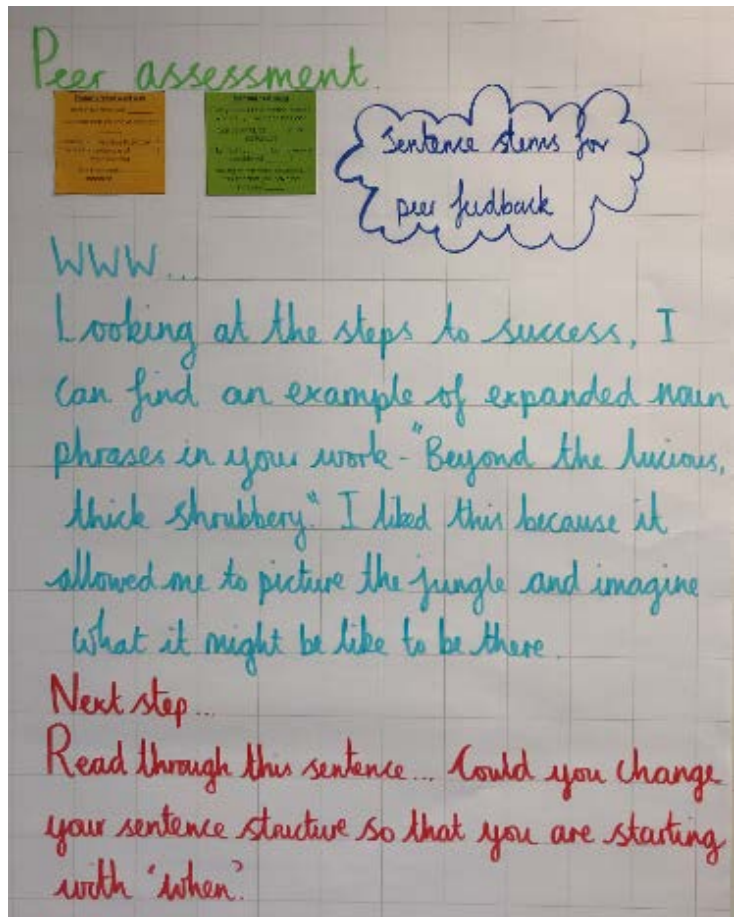 Peer assessment.
Sentence stems for
peer feedback
WWW...
Looking at the steps to success, I
can find an example of expanded noun
phrases in your work - "Beyond the lucious,
thick shrubbery." I liked this because it
allowed me to picture the jungle and imagine
what it might be like to be there.
Next step...
Read through this sentence... Could you change
your sentence structure so that you are starting
with 'when'?